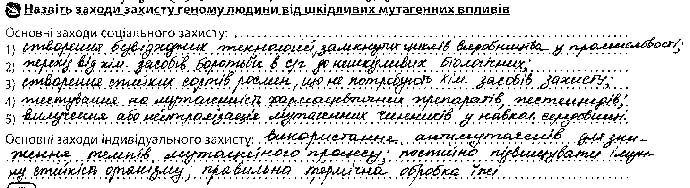 Назвіть заходи захисту геному людини від шкідливих мутагенних впливів
Основні заходи соціального захисту:
1) створення безвідходних технологій, замкнутих циклів виробництва у промисловості;
2) перехід від хім. засобів боротьби в с/г до нешкідливих біологічних;
3) створення стійких сортів рослин, що не потребують хім. засобів захисту;
4) тестування на мутагенність фармацевтичних препаратів, пестицидів;
5) вилучення або нейтралізація мутагенних чинників у навкол. середовищі.
Основні заходи індивідуального захисту: використання антимутагенів для зни-
ження темпів мутаційного процесу; постійно підвищувати імун-
ну стійкість організму, правильна термічна обробка їжі